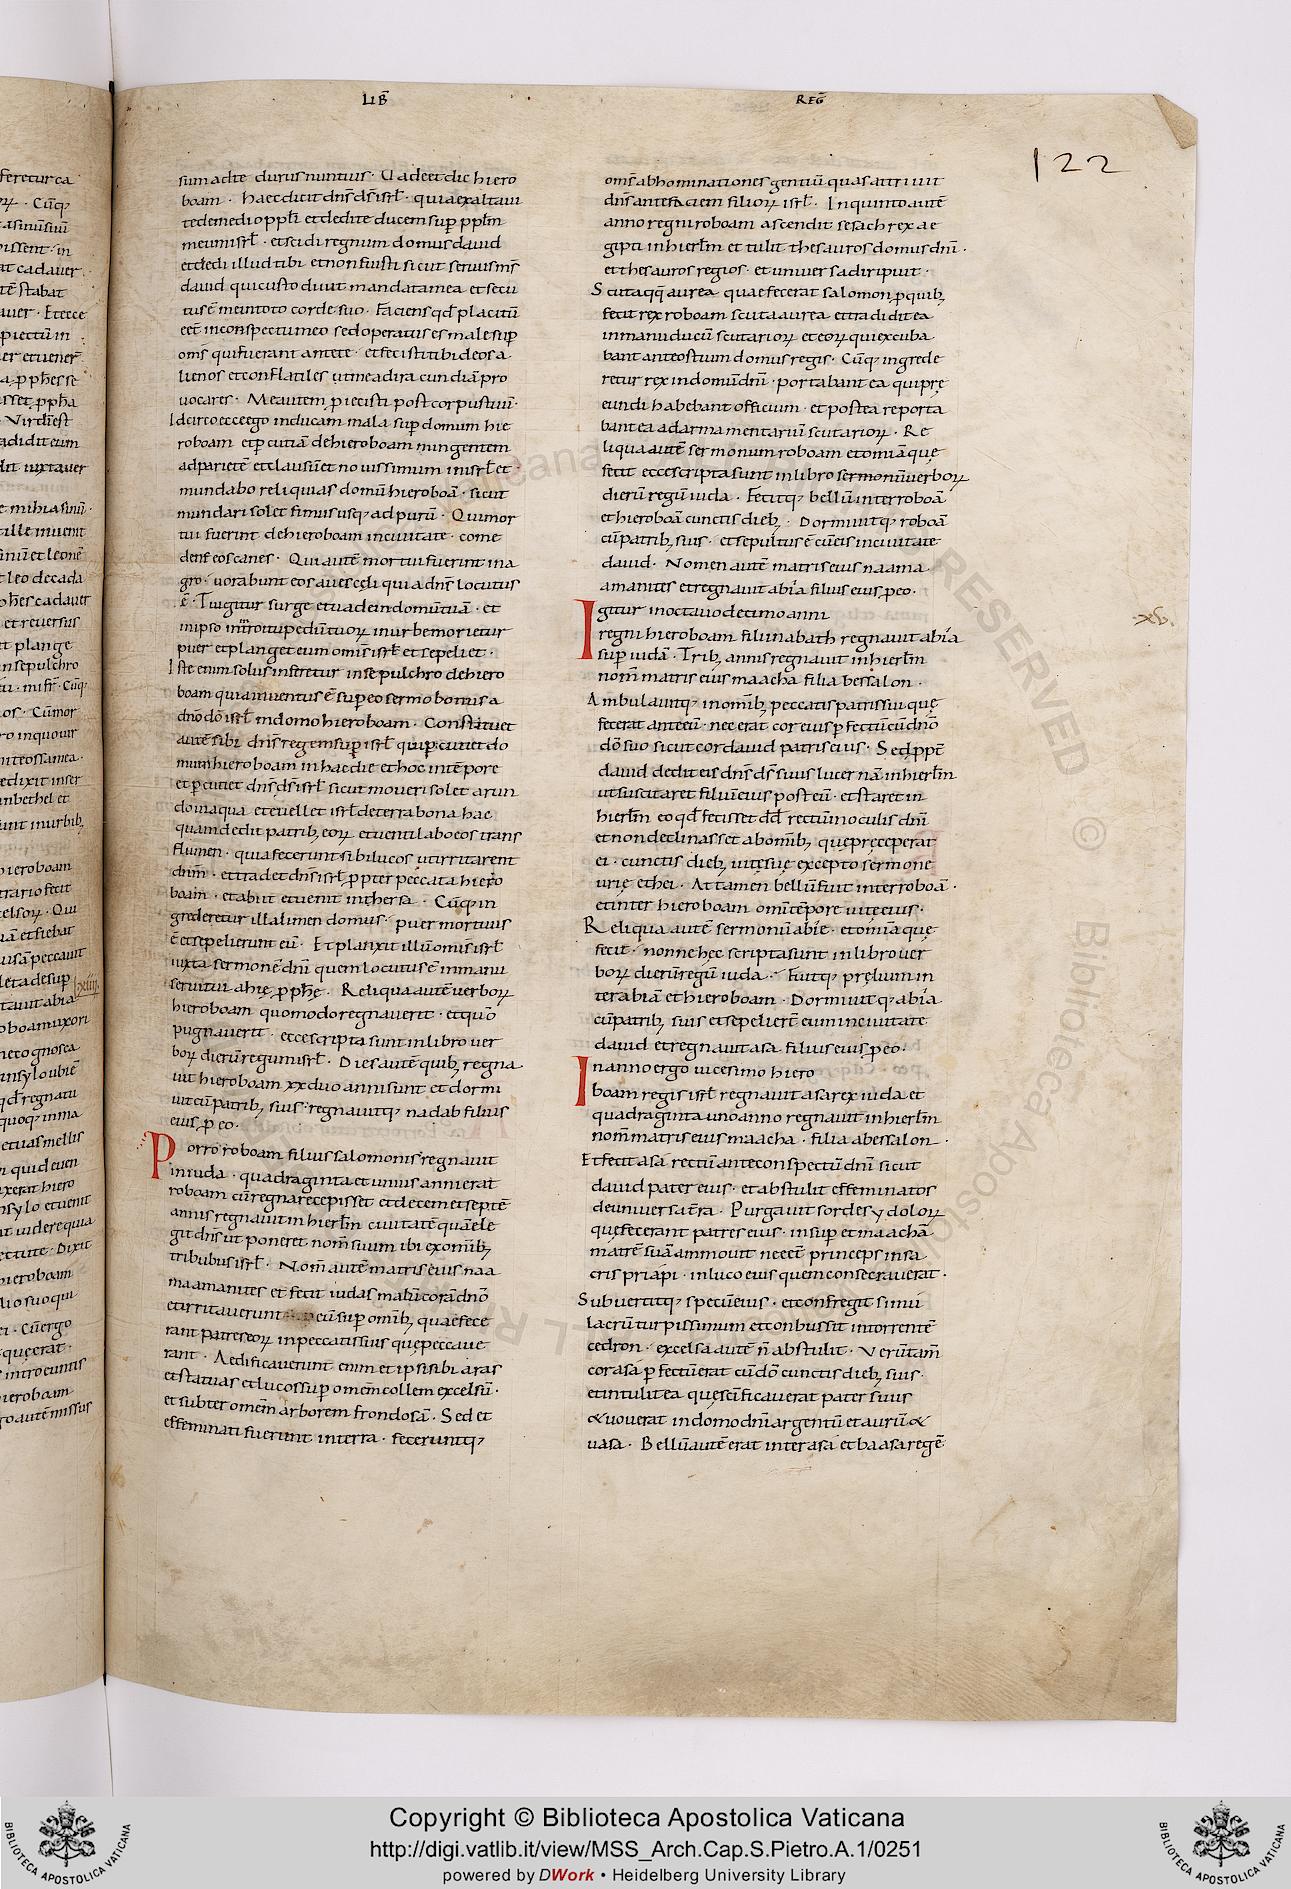 LIB̄
REḠ
122
sum ad te durus nuntius · Uade et dic hiero
boam · Haec dicit dn̄s ds̄ isrl̄ · quia exaltavi
te de medio ppl̄i et dedi te ducem sup̱ ppl̄m
meum isrl̄ · et scidi regnum domus david
et dedi illud tibi et non fuisti sicut servus ms̄
david qui custodivit mandata mea et secu
tus ē me in toto corde suo · Faciens qd̄ placitū
eēt in conspectu meo sed operatus es male sup̱
oms̄ qui fuerant ante te · et fecisti tibi deos a
lienos et conflatiles ut me ad iracundiā pro
vocares · Me autem ꝓiecisti post corpus tuū ·
Idcirco ecce ego inducam mala sup̱ domum hie
roboam et p̱cutiā de hieroboam mingentem
ad parietē et clausū et novissimum in isrl̄ et
mundabo reliquias domū hieroboā · sicut
mundari solet fimus usq; ad purū · Qui mor
tui fuerint de hieroboam in civitate · come
dent eos canes · Qui autē mortui fuerint in a
gro · vorabunt eos aves cęli quia dn̄s locutus
ē · Tu igitur surge et vade in domū tuā · et
in ipso introitu pedū tuoꝝ in urbe morietur
puer et planget eum omīs isrl̄ et sepeliet ·
Iste enim solus inferetur in sepulchro de hiero
boam quia inventus ē sup̱ eo sermo bonus a
dn̄o dō isrl̄ in domo hieroboam · Constituet
autē sibi dn̄s regem sup̱ isrl̄ qui p̱cutiet do
mum hieroboam in hac die et hoc in tēpore
et p̱cutiet dn̄s ds̄ isrl̄ sicut moveri solet arun
do in aqua et evellet isrl̄ de terra bona hac
quam dedit patrib; eoꝝ et ventilabo eos trans
flumen · quia fecerunt sibi lucos ut irritarent
dnm̄ · et tradet dn̄s isrl̄ ꝓpter peccata hiero
boam · et abiit et venit in thersa · Cūq; in
grederetur illa limen domus · puer mortuus
ē et sepelierunt eū · Et planxit illū omīs isrl̄
iuxta sermonē dn̄i quem locutus ē in manu
servi tui ahię ꝓph̄ę · Reliqua autē verboꝝ
hieroboam quomodo regnaverit · et quō
pugnaverit · ecce scripta sunt in libro ver
boꝝ dierū regum isrl̄ · Dies autē quib; regna
vit hieroboam xx duo anni sunt et dormi
vit cū patrib; suis · regnavitq; nadab filius
eius ꝓ eo ·
Porro roboam filius salomonis regnavit
in iuda · quadraginta et unius anni erat
roboam cū regnare cepisset et decem et septē
annis regnavit in hierl̄m civitatē quā ele
git dn̄s ut poneret nom̄ suum ibi ex omīb;
tribubus isrl̄ · Nom̄ autē matris eius naa
ma amanites et fecit iudas malū corā dn̄o
et irritaverunt eū sup̱ omīb; quae fece
rant patres eoꝝ in peccatis suis quę peccave
rant · Aedificaverunt enim et ipsi sibi aras
et statuas et lucos sup̱ omēm collem excelsū ·
et subter omēm arborem frondosā · Sed et
effeminati fuerunt in terra · feceruntq;
oms̄ abhominationes gentiū quas attrivit
dn̄s ante faciem filioꝝ isrl̄ · In quinto autē
anno regni roboam ascendit sesach rex ae
gipti in hierl̄m et tulit thesauros domus dn̄i ·
et thesauros regios · et universa diripuit ·
Scuta qq̄ aurea quae fecerat salomon ꝓ quib;
fecit rex roboam scuta aurea et tradidit ea
in manu ducū scutarioꝝ et eoꝝ qui excuba
bant ante ostium domus regis · Cūq; ingrede
retur rex in domū dn̄i · portabant ea qui prę
eundi habebant officium · et postea reporta
bant ea ad armamentariū scutarioꝝ · Re
liqua autē sermonum roboam et omīa quę
fecit ecce scripta sunt in libro sermonū verboꝝ
dierū regū iuda · Fuitq; bellū inter roboā
et hieroboā cunctis dieb; · Dormivitq; roboā
cū patrib; suis · et sepultus ē cū eis in civitate
david · Nomen autē matris eius naama
amanites et regnavit abia filius eius ꝓ eo ·
Igitur in octavo decimo anni
regni hieroboam filii nabath regnavit abia
sup̱ iudā · Trib; annis regnavit in hierl̄m
nom̄ matris eius maacha filia bessalon ·
xv.
Ambulavitq; in omīb; peccatis patris sui quę
fecerat ante eū · nec erat cor eius p̱fectū cū dn̄o
dō suo sicut cor david patris eius · Sed ꝓpt̄
david dedit eis dn̄s ds̄ suus lucernā in hierl̄m
ut suscitaret filiū eius post eū · et staret in
hierl̄m eo qd̄ fecisset dd̄ rectū in oculis dn̄i
et non declinasset ab omīb; quę pręceperat
ei · cunctis dieb; vitę suę excepto sermone
urię ethei · Attamen bellū fuit inter roboā ·
et inter hieroboam omī tēpore vitę eius ·
Reliqua autē sermonū abię · et omīa quę
fecit · nonne hęc scripta sunt in libro ver
boꝝ dierū regū iuda · Fuitq; pręlium in
ter abiā et hieroboam · Dormivitq; abia
cū patrib; suis et sepelierī eum in civitate
david et regnavit asa filius eius ꝓ eo ·
In anno ergo vicesimo hiero
boam regis isrl̄ regnavit asa rex iuda et
quadraginta uno anno regnavit in hierl̄m
nom̄ matris eius maacha · filia abessalon ·
Et fecit asa rectū ante conspectū dn̄i sicut
david pater eius · et abstulit effeminatos
de universa t̄ra · Purgavit sordes ydoloꝝ
quę fecerant patres eius · insup̱ et maachā
matrē suā ammovit ne eēt princeps in sa
cris priapi · in luco eius quem consecraverat ·
Subvertitq; specū eius · et confregit simu
lacrū turpissimum et conbussit in torrentē
cedron · excelsa autē n̄ abstulit · Verūtam̄
cor asa p̱fectū erat cū dō cunctis dieb; suis ·
et intulit ea quę scīficaverat pater suus
& voverat in domo dn̄i argentū et aurū &
vasa · Bellū autē erat inter asa et baasa regē
Copyright © Biblioteca Apostolica Vaticana
http://digi.vatlib.it/view/MSS_Arch.Cap.S.Pietro.A.1/0251
powered by DWork • Heidelberg University Library
BIBLIOTECA APOSTOLICA VATICANA
BIBLIOTECA APOSTOLICA VATICANA